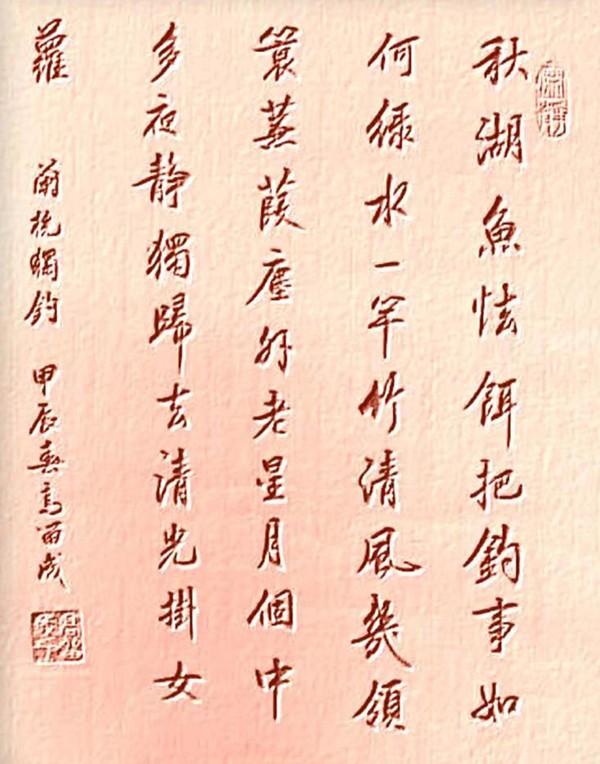 秋湖魚怯餌把釣事如
何綠水一竿竹清風幾領
簑蒹葭塵外老星月個中
多夜靜獨歸去清光掛女
蘿 蘭橈獨釣 甲辰